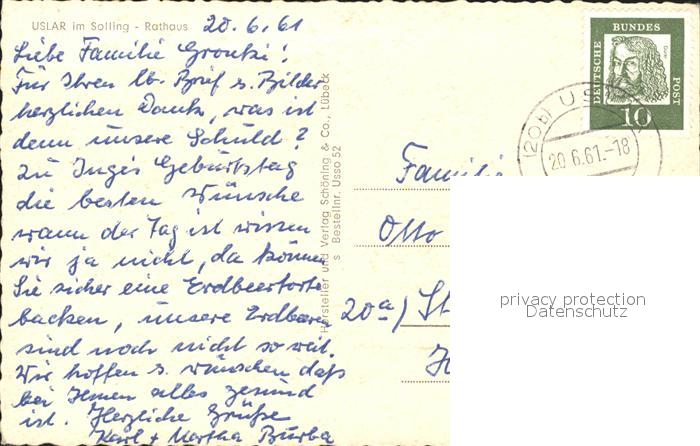 USLAR im Solling - Rathaus
20.6.61
Liebe Familie
Für Ihren lb. Brief u. Bilder
herzlichen Dank, was ist
denn unsere Schuld?
Zu Inges Geburtstag
die besten Wünsche
wann der Tag ist wissen
wir ja nicht, da können
Sie sicher eine Erdbeertorte
backen, unsere Erdbeeren
sind noch nicht so weit.
Wir hoffen u. wünschen daß
bei Ihnen alles gesund
ist. Herzliche Grüße
Karl + Martha Burba
Hersteller und Verlag Schöning & Co., Lübeck
s Bestellnr. Usso 52
DEUTSCHE
BUNDES
POST
10
(20b) US
20.6.61.-18
Familie
Otto
20a) St
privacy protection
Datenschutz